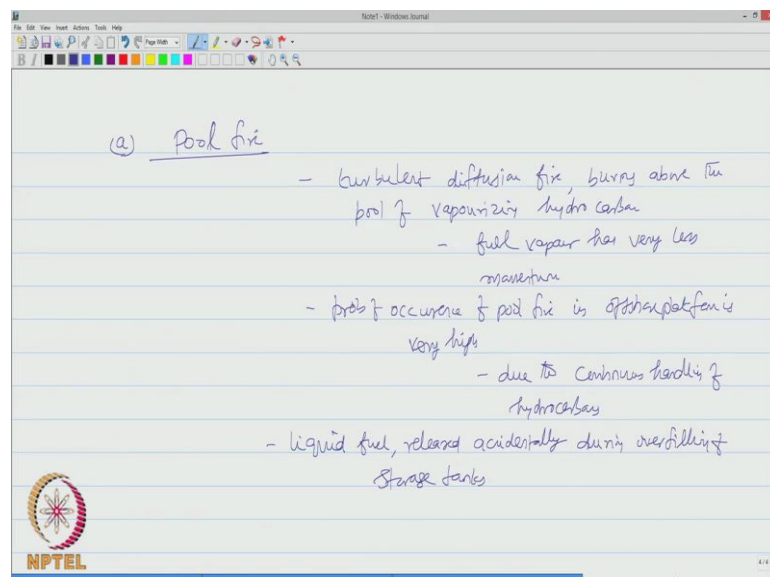 Note1 - Windows Journal
File Edit View Insert Actions Tools Help
Page Width
B I
(a) Pool fire
- turbulent diffusion fire, burns above the
pool of vapourizing hydro carbon
- fuel vapour has very less
momentum
- prob of occurence of pool fire in offshore platform is
very high
- due to continuous handling of
hydrocarbons
- liquid fuel, released accidentally during overfilling of
storage tanks
NPTEL
4/4